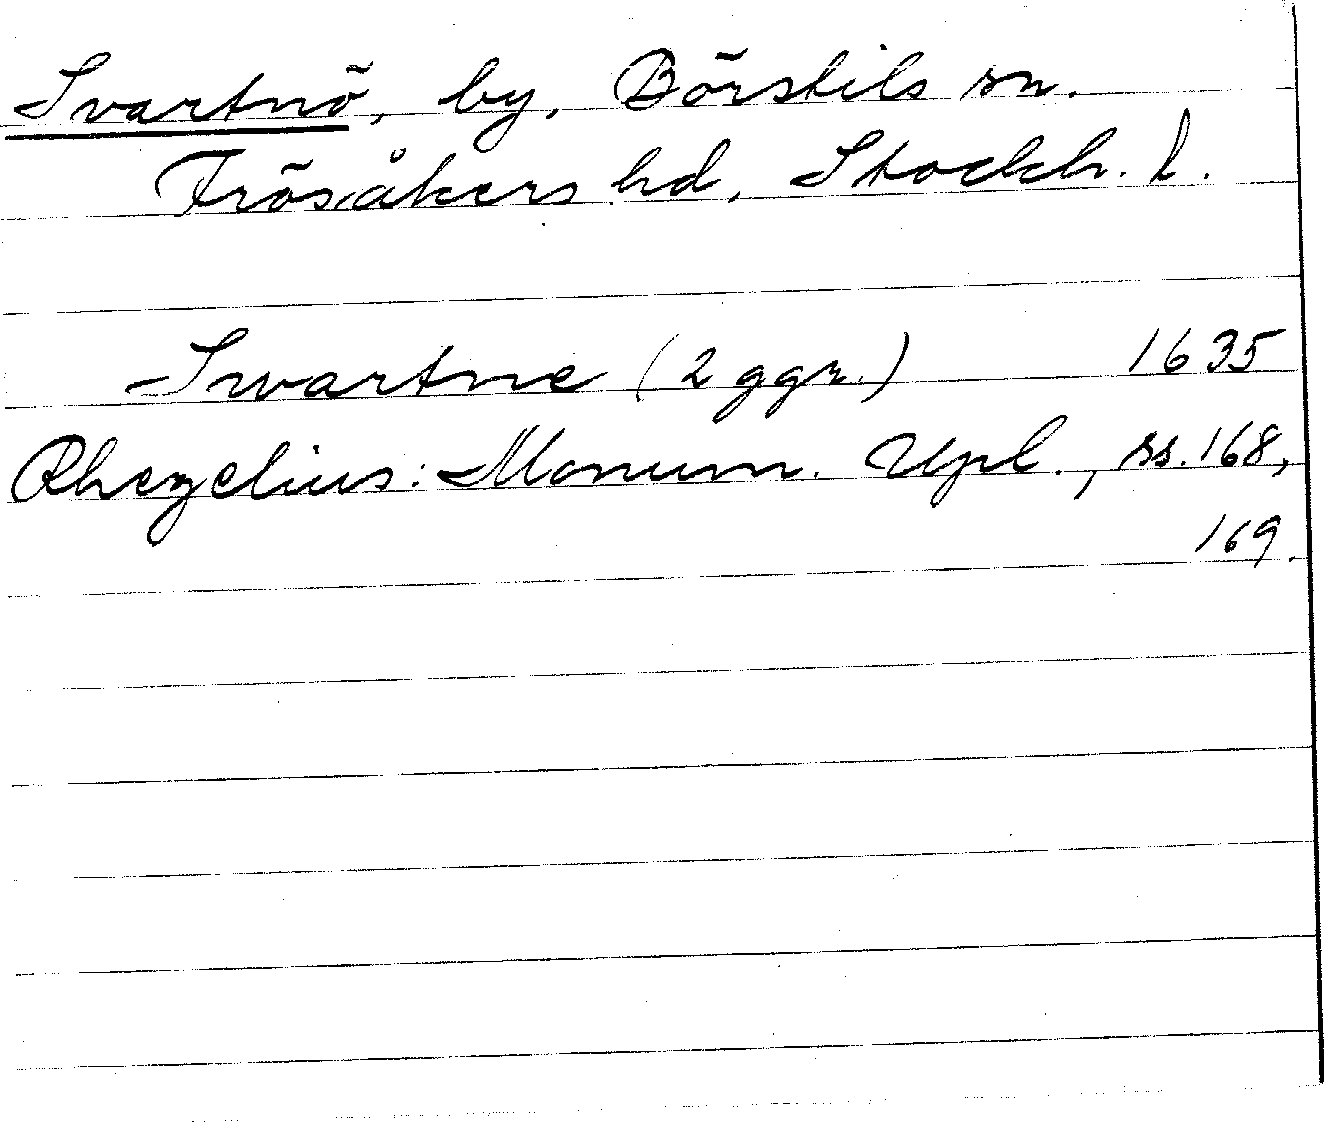 Svartnö, by, Börstils sn.
Frösåkers hd, Stockh. l.
Swartne (2 ggr.) 1635
Rhezelius: Monum. Upl., ss. 168,
169.